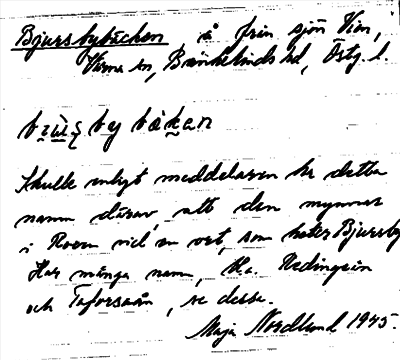 Bjursbybäcken å från sjön Vin,
Virma sn, Bankekinds hd, Östg. l.
by bäkan
Skulle enligt meddelaren ha detta
namn därav, att den mynnar
i Roen vid en ort, som heter Bjursby
Har många namn, bl.a. Redingeån
och Taforsaån, se dessa.
Maja Nordlund 1945.